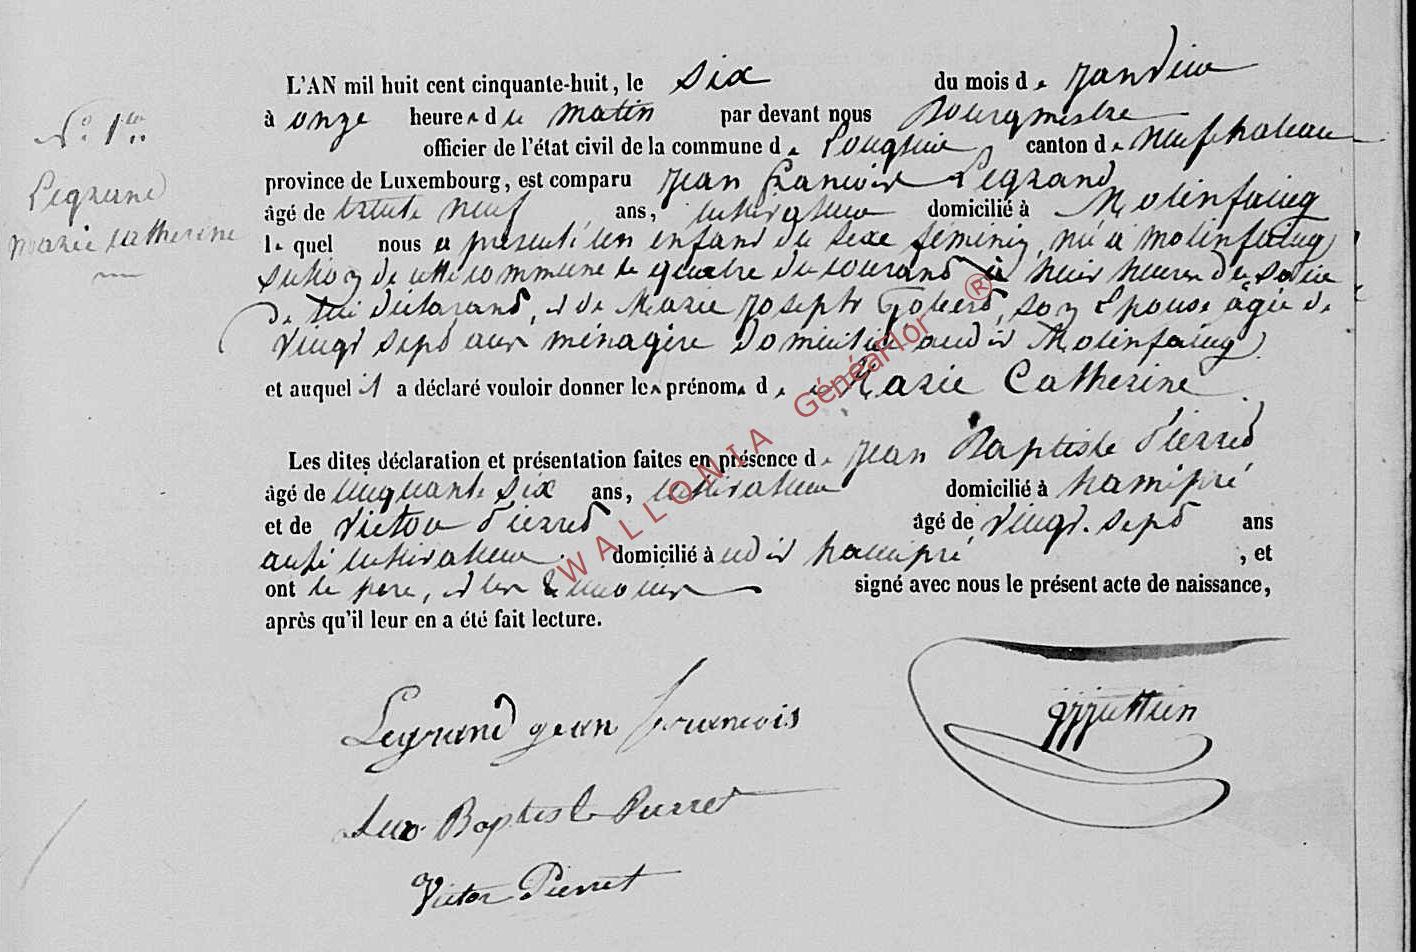 N° 1er
Legrand
Marie Catherine
L'AN mil huit cent cinquante-huit, le six du mois de janvier
à onze heures du matin par devant nous Bourgmestre
officier de l'état civil de la commune de Longlier, canton de Neufchateau
province de Luxembourg, est comparu Jean François Legrand
âgé de trente neuf ans, cultivateur domicilié à Molinfaing
lequel nous a présenté un enfant du sexe féminin, né à Molinfaing
section de cette commune le quatre du courant à huit heures du soir
de lui déclarant, et de Marie Joseph Gobert, son Epouse âgée de
vingt sept ans ménagère domiciliée audit Molinfaing
et auquel il a déclaré vouloir donner les prénoms de Marie Catherine
Les dites déclaration et présentation faites en présence de Jean Baptiste Pierret
âgé de cinquante six ans, cultivateur domicilié à hamipré
et de Victor Pierret âgé de vingt-sept ans
aussi cultivateur domicilié audit hamipré, et
ont le père, et les témoins signé avec nous le présent acte de naissance,
après qu'il leur en a été fait lecture.
Legrand jean francois
Baptiste Pierret
Victor Pierret
WALLONIA Généaflor ®